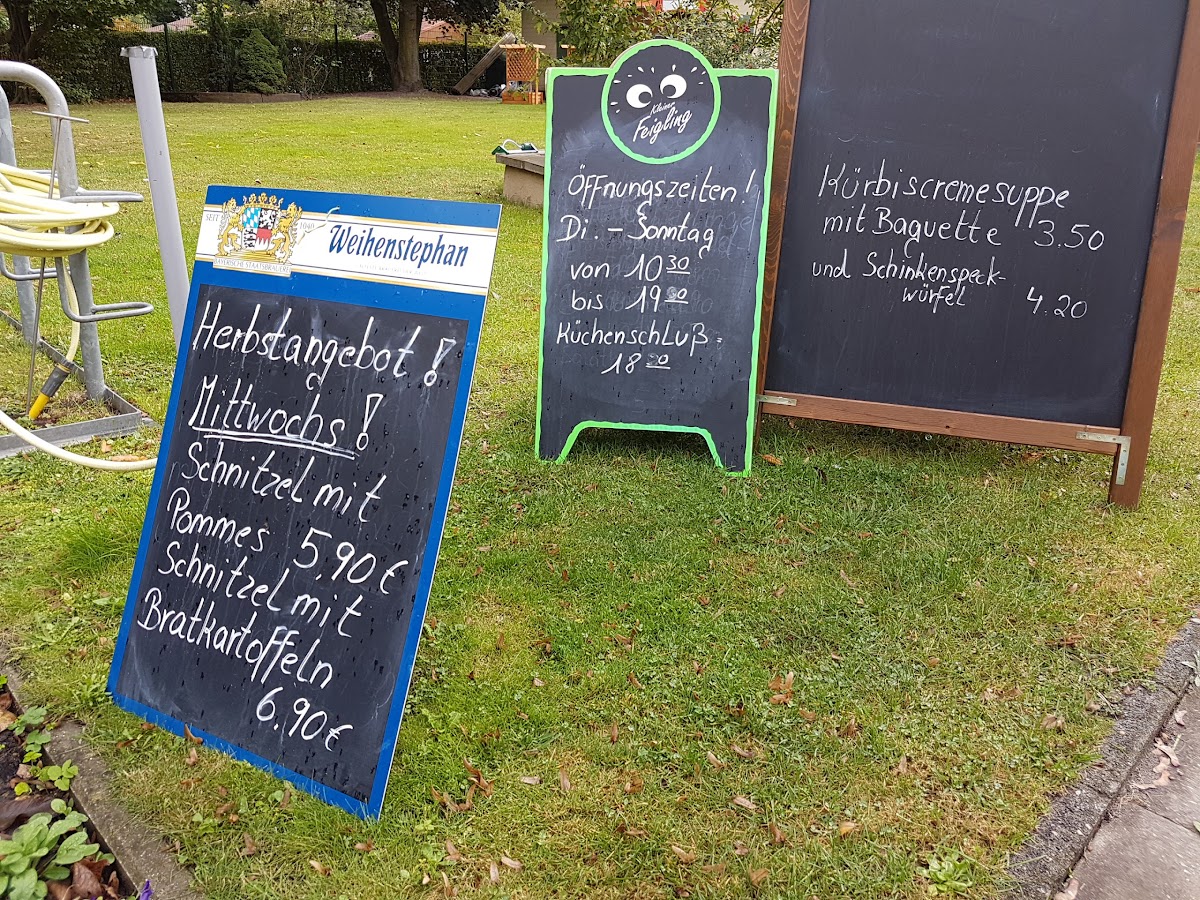 SEIT
1040
Weihenstephan
Herbstangebot!
Mittwochs!
Schnitzel mit
Pommes 5,90 €
Schnitzel mit
Bratkartoffeln
6.90 €
Kleiner
Feigling
Öffnungszeiten!
Di. – Sonntag
von 10 30
bis 19 00
Küchenschluß =
18 00
Kürbiscremesuppe
mit Baguette 3.50
und Schinkenspeck-
würfel 4.20